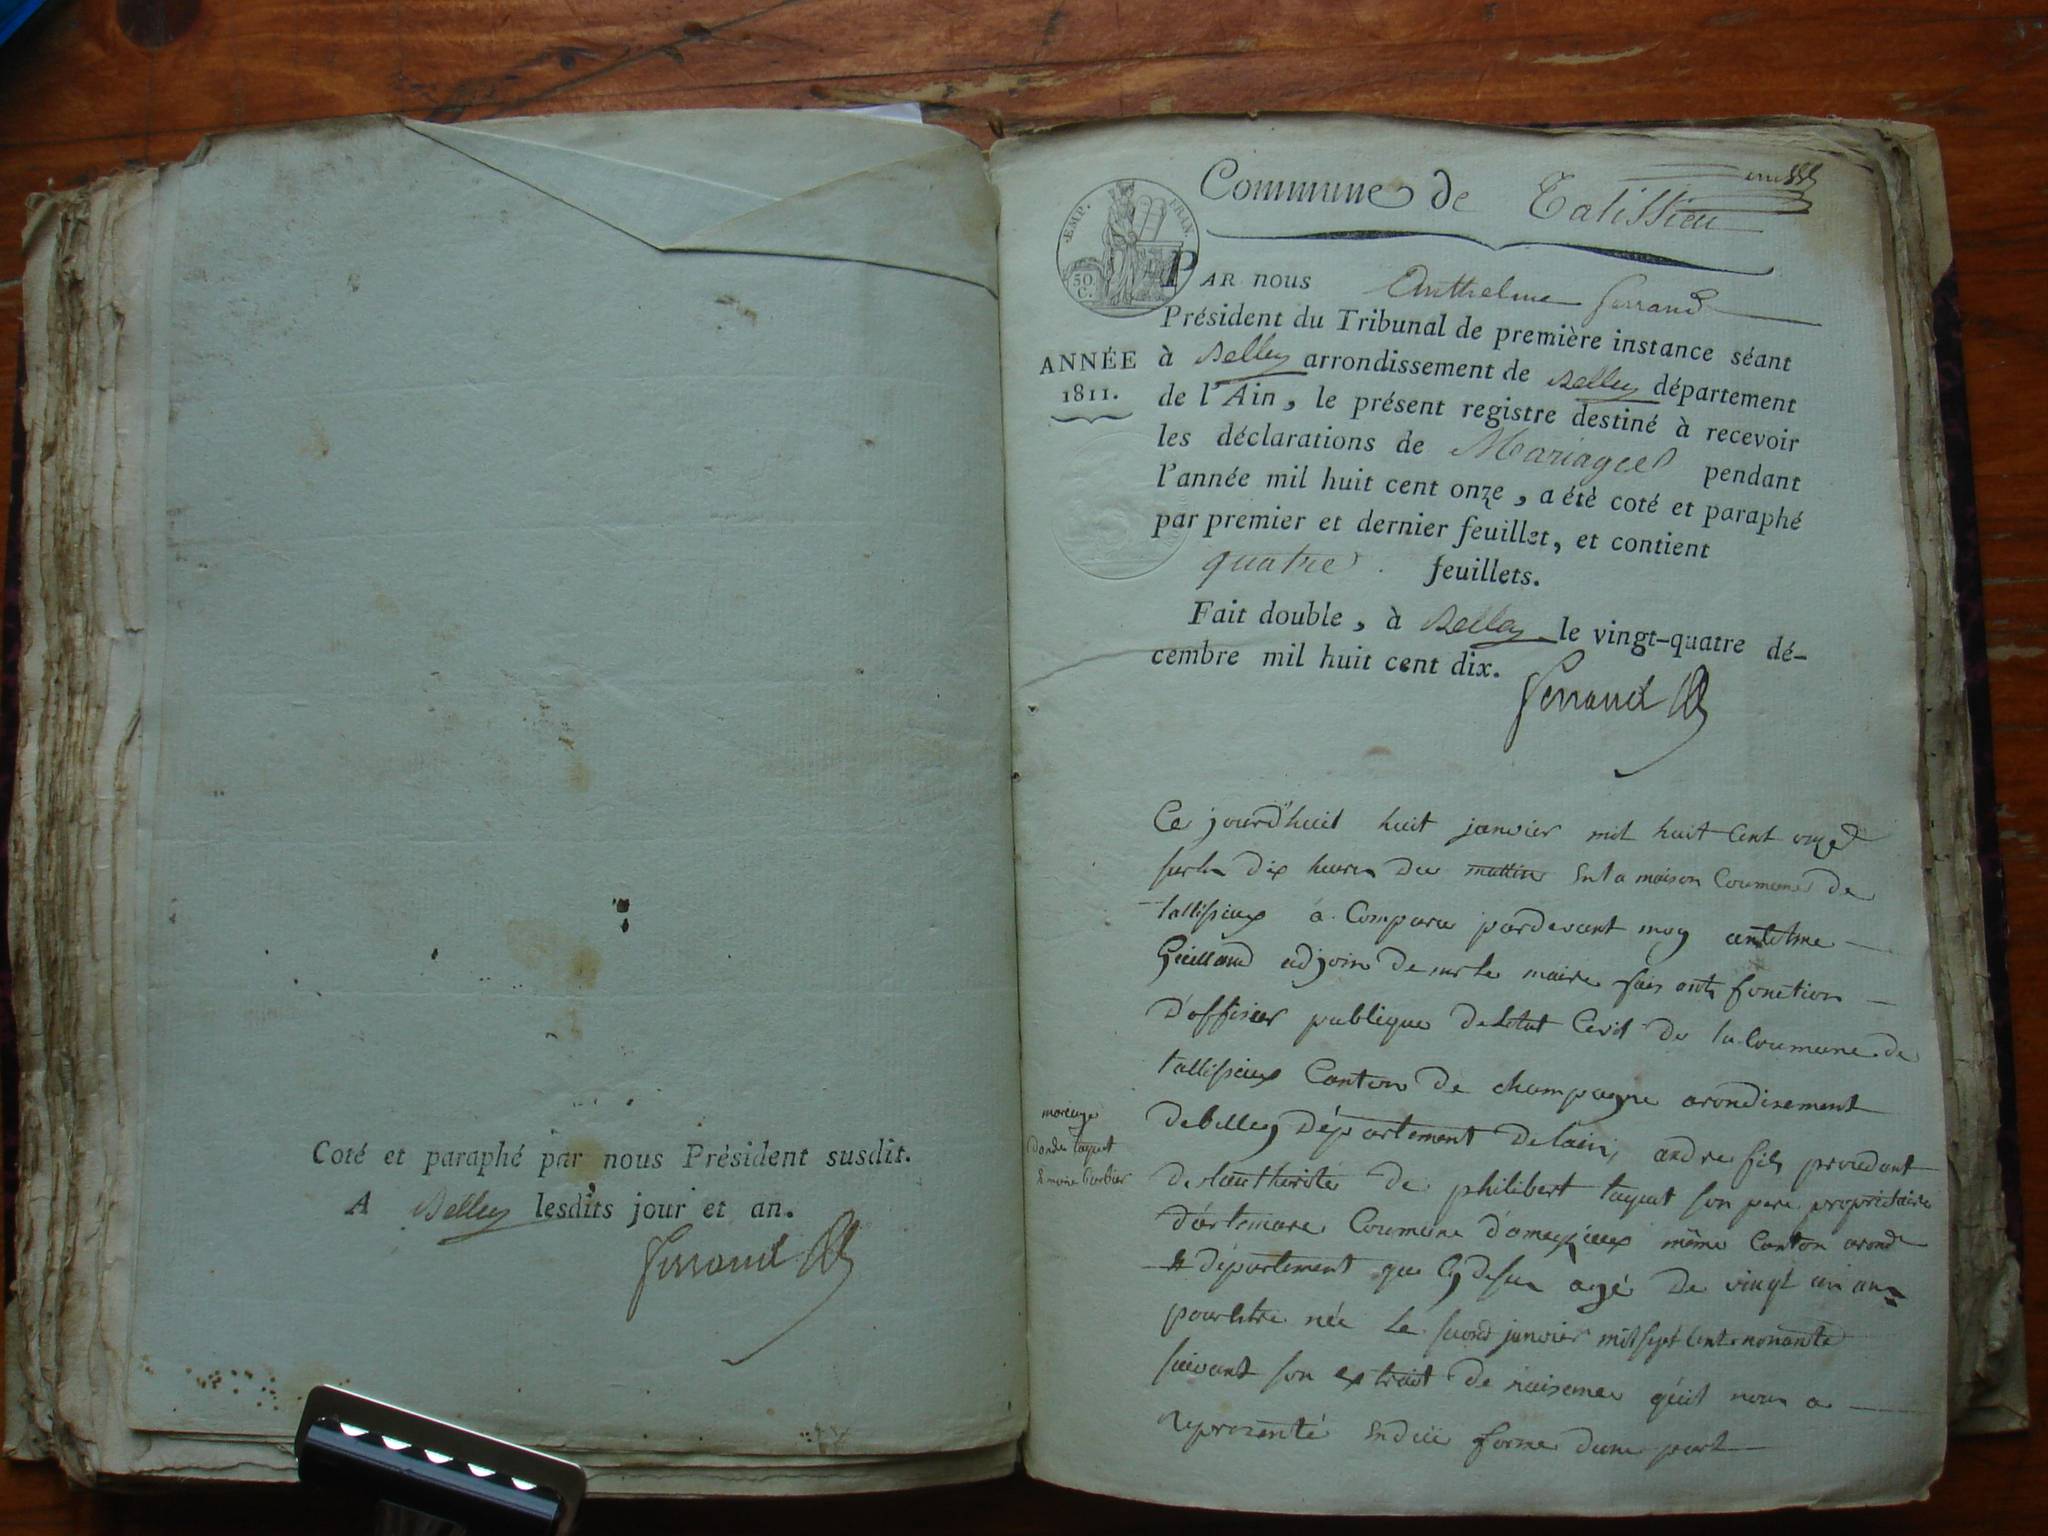 Coté et paraphé par nous Président susdit.
A Belley lesdits jour et an.
Ferrand
Commune de Talissieu
EMP. FRAN.
50 C.
PAR nous Anthelme Ferrand
Président du Tribunal de première instance séant
ANNÉE
1811.
à Belley arrondissement de Belley département
de l'Ain, le présent registre destiné à recevoir
les déclarations de Mariages pendant
l'année mil huit cent onze, a été coté et paraphé
par premier et dernier feuillet, et contient
quatre feuillets.
Fait double, à Belley le vingt-quatre dé-
cembre mil huit cent dix.
Ferrand
Ce jourd'huit huit janvier mil huit Cent onze
sur les dix heures du mattin En la maison Coumune de
tallissieux a Comparu pardevant moy antelme
Guilland adjoin de mr le maire faisant fonction
D'offisier publique de Letat Civil de la Coumune de
tallissieux Canton de champagne arondisement
de belley Département de Lain, andre fils proudant
de Lauthorité de philibert taquet son pere propriétaire
d'artemare Coumune d'ameyzieux même Canton arond
& département que Cy dessus agé de vingt un ans
pour être née Le second janvier mil sept Cent nonante
suivant son extrait de naisence qu'il nous a
représenté En düe forme d'une part
mariage
d'andre taquet
& marie Barbier